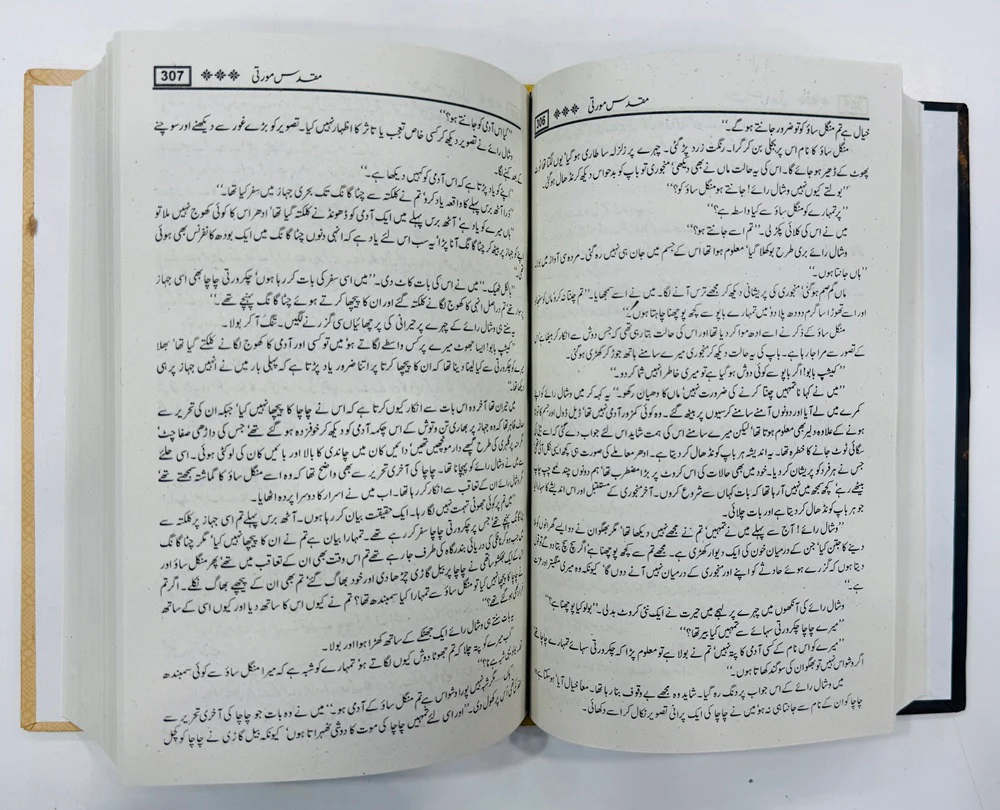 306 ❖❖❖ مقدس مورتی
خیال ہے تم منگل ساؤ کو تو ضرور جانتے ہو گے۔‘‘
منگل ساؤ کا نام اس پر بجلی بن کر گرا۔ رنگت زرد پڑ گئی۔ چہرے پر زلزلہ سا طاری ہو گیا‘ یوں لگتا تھا
پھوٹ کے ڈھیر ہو جائے گا۔ اس کی یہ حالت ماں نے بھی دیکھی‘ منجوری تو باپ کو بدحواس دیکھ کر نڈھال ہو گئی۔
’’بولتے کیوں نہیں وشال رائے! جانتے ہو منگل ساؤ کو؟‘‘
’’پر تمہارے کو منگل ساؤ سے کیا واسطہ ہے؟‘‘
میں نے اس کی کلائی پکڑ لی۔ ’’تم اسے جانتے ہو؟‘‘
وشال رائے بری طرح بوکھلا گیا‘ معلوم ہوا تھا اس کے جسم میں جان ہی نہیں رہ گئی۔ مردہ سی آواز میں بولا
’’ہاں جانتا ہوں۔‘‘
ماں گم صم ہو گئی‘ منجوری کی پریشانی دیکھ کر مجھے ترس آنے لگا۔ میں نے اسے سمجھایا۔ ’’تم چنتا نہ کرو
اور اسے تھوڑا سا گرم دودھ پلا دو‘ میں تمہارے باپو سے کچھ پوچھنا چاہتا ہوں۔‘‘
منگل ساؤ کے ذکر نے اسے ادھ موا کر دیا تھا اور اس کی حالت بتا رہی تھی کہ جس دوش سے انکار کر
کے تصور سے مرا جا رہا ہے۔ باپ کی یہ حالت دیکھ کر منجوری میرے سامنے ہاتھ جوڑ کر کھڑی ہو گئی۔
’’کیشپ بابو! اگر باپو سے کوئی دوش ہو گیا ہے تو میری خاطر انہیں شما کر دو۔‘‘
’’میں نے کہا نا تمہیں چنتا کرنے کی ضرورت نہیں‘ ماں کا دھیان رکھو۔‘‘ یہ کہہ کر میں وشال رائے کو اپنے
کمرے میں لے آیا اور دونوں آمنے سامنے کرسیوں پر بیٹھ گئے۔ وہ کوئی کمزور آدمی نہیں تھا‘ ڈیل ڈول اور
ہونے کے علاوہ دلیر بھی معلوم ہوتا تھا‘ لیکن میرے سامنے اس کی ہمت شاید اس لئے جواب دے گئی کہ اسے
سگائی ٹوٹ جانے کا خطرہ تھا۔ یہ اندیشہ ہر باپ کو نڈھال کر دیتا ہے۔ ادھر معاملے کی صورت ہی کچھ ایسی
جس نے ہر فرد کو پریشان کر دیا۔ خود میں بھی حالات کی اس کروٹ پر بڑا مضطرب تھا‘ ہم دونوں چند لمحے چپ چاپ
بیٹھے رہے‘ کچھ سمجھ میں نہیں آ رہا تھا کہ بات کہاں سے شروع کروں۔ آخر منجوری کے مستقبل اور اس اندیشے کا سہارا
جو ہر باپ کو نڈھال کر دیتا ہے اور بات چلائی۔
’’وشال رائے! آج سے پہلے میں نے تمہیں‘ تم نے مجھے نہیں دیکھا تھا‘ مگر بھگوان نے دو ایسے گھرانوں کو
دینے کا جتن کیا‘ جن کے درمیان خون کی ایک دیوار کھڑی ہے۔ مجھے تم سے کچھ پوچھنا ہے‘ اگر سچ سچ بتا دو گے تو
دیتا ہوں کہ گزرے ہوئے حادثے کو اپنے اور منجوری کے درمیان نہیں آنے دوں گا‘ کیونکہ وہ میری منگیتر اور
ہے۔‘‘
وشال رائے کی آنکھوں میں چہرے پر لہجے میں حیرت نے ایک نئی کروٹ بدلی۔ ’’بولو کیا پوچھنا ہے؟‘‘
’’میرے چاچا چکرورتی سہائے سے تمہیں کیا بیر تھا؟‘‘
’’میرے کو اس نام کے کسی آدمی کا پتہ نہیں‘ تم نے بولا ہے تو معلوم پڑا کہ چکرورتی سہائے تمہارے چاچا تھے
اگر وشواس نہیں تو بھگوان کی سوگند کھاتا ہوں۔‘‘
میں وشال رائے کے اس جواب پر دنگ رہ گیا۔ شاید وہ مجھے بے وقوف بنا رہا تھا۔ معاً خیال آیا‘ ہو سکتا ہے
چاچا کو ان کے نام سے جانتا ہی نہ ہو‘ میں نے چاچا کی ایک پرانی تصویر نکال کر اسے دکھائی۔
307 ❖❖❖ مقدس مورتی
’’کیا اس آدمی کو جانتے ہو؟‘‘
وشال رائے نے تصویر دیکھ کر کسی خاص تعجب یا تاثر کا اظہار نہیں کیا۔ تصویر کو بڑے غور سے دیکھنے اور سوچنے
کے بعد کہنے لگا۔
’’اپنے کو یاد پڑتا ہے کہ اس آدمی کو کہیں دیکھا ہے۔‘‘
’’ذرا آٹھ برس پہلے کا واقعہ یاد کرو‘ تم نے کلکتہ سے چٹا گانگ تک بحری جہاز میں سفر کیا تھا۔‘‘
’’ہاں میرے کو یاد ہے‘ آٹھ برس پہلے میں ایک آدمی کو ڈھونڈنے کلکتے گیا تھا‘ ادھر اس کا کوئی کھوج نہیں ملا تو
اپنے کو جہاز پر بیٹھ کر چٹا گانگ آنا پڑا‘ یہ سب اس لئے یاد ہے کہ انہی دنوں چٹا گانگ میں ایک بودھ کانفرنس بھی ہوئی
تھی۔‘‘
’’بالکل ٹھیک۔‘‘ میں نے اس کی بات کاٹ دی۔ ’’میں اسی سفر کی بات کر رہا ہوں‘ چکرورتی چاچا بھی اسی جہاز
پر سوار تھے‘ تم دراصل انہی کا کھوج لگانے کلکتہ گئے اور ان کا پیچھا کرتے ہوئے چٹا گانگ پہنچے تھے۔‘‘
یہ سنتے ہی وشال رائے کے چہرے پر حیرانی کی پرچھائیاں سی گزرنے لگیں۔ تنگ آ کر بولا۔
’’کیشپ بابو! ایسا جھوٹ میرے پر کس واسطے لگاتے ہو‘ میں تو کسی اور آدمی کا کھوج لگانے کلکتے گیا تھا‘ بھلا
میرے کو چکرورتی سے کیا لینا دینا تھا کہ ان کا پیچھا کرتا پر اتنا ضرور یاد پڑتا ہے کہ پہلی بار میں نے انہیں جہاز پر ہی
دیکھا تھا۔‘‘
میں حیران تھا آخر وہ اس بات سے انکار کیوں کرتا ہے کہ اس نے چاچا کا پیچھا نہیں کیا‘ جبکہ ان کی تحریر سے
صاف ظاہر تھا کہ وہ جہاز پر بھاری تن و توش کے اس چیچک آدمی کو دیکھ کر خوفزدہ ہو گئے تھے‘ جس کی داڑھی صفاچٹ‘
کی طرح گچھے دار مونچھیں تھیں‘ دائیں کان میں چاندی کا بالا اور بائیں کان کی لو کٹی ہوئی۔ اسی حلئے
سے میں نے وشال رائے کو پہچانا تھا۔ چاچا کی آخری تحریر سے بھی واضح تھا کہ وہ اسے منگل ساؤ کا گماشتہ سمجھتے تھے‘
مگر وشال رائے ان کے تعاقب سے انکار کر رہا تھا۔ اب میں نے اسرار کا دوسرا پردہ اٹھایا۔
’’میں تم پر کوئی جھوٹی تہمت نہیں لگا رہا۔ ایک حقیقت بیان کر رہا ہوں۔ آٹھ برس پہلے تم اسی جہاز پر کلکتہ سے
چٹا گانگ پہنچے تھے‘ جس پر چکرورتی چاچا سفر کر رہے تھے۔ تمہارا بیان ہے تم نے ان کا پیچھا نہیں کیا‘ مگر چٹا گانگ
بندرگاہ کی طرف جا رہے تھے تم اس وقت بھی ان کے تعاقب میں تھے‘ پھر منگل ساؤ اور
اس کے ایک بھکشو ساتھی نے چاچا پر بیل گاڑی چڑھا دی اور خود بھاگ گئے‘ تم بھی ان کے پیچھے بھاگ نکلے۔ اگر تم
نے چاچا کا پیچھا نہیں کیا تو منگل ساؤ سے تمہارا کیا سمبندھ تھا؟ تم نے کیوں اس کا ساتھ دیا اور کیوں اسی کے ساتھ
فرار ہو گئے تھے؟‘‘
یہ بات سنتے ہی وشال رائے ایک جھٹکے کے ساتھ کھڑا ہوا اور بولا۔
’’اب میرے کو پتہ چلا کہ تم جھوٹا دوش کیوں لگاتے ہو‘ تمہارے کو شبہ ہے کہ میرا منگل ساؤ سے کوئی سمبندھ
’’شبہ نہیں پورا وشواس ہے تم منگل ساؤ کے آدمی ہو۔‘‘ میں نے وہ بات جو چاچا کی آخری تحریر سے
اس پر کھول دی۔ ’’اور اسی لئے تمہیں چاچا کی موت کا دوشی ٹھہراتا ہوں‘ کیونکہ بیل گاڑی نے چاچا کو کچل